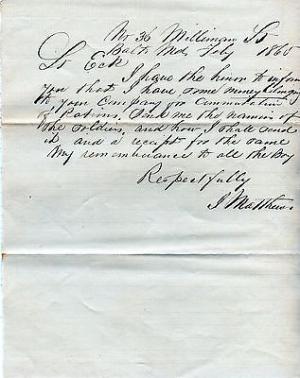 No 36 Milliman St
Balto Md, July 1865
Lt Eck
I have the honor to inform
you that I have some money belonging
to your Company for Commutation
of Rations. Send me the names of
the soldiers, and how I shall send
it and a receipt for the same
My remembrance to all the Boy
Respectfully
J Matthews